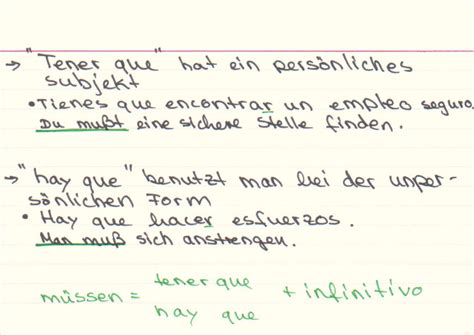 → "Tener que" hat ein persönliches
subjekt
• Tienes que encontrar un empleo seguro.
Du mußt eine sichere Stelle finden.
→ "hay que" benutzt man bei der unper-
sönlichen Form
• Hay que hacer esfuerzos.
Man muß sich anstrengen.
müssen = tener que
hay que + infinitivo